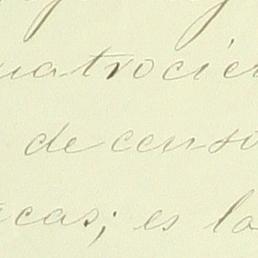 uatrocien
de censo
ecas; es la